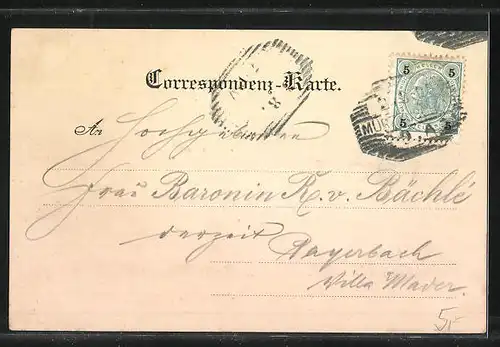 Correspondenz-Karte.
An Hochgeborene
Frau Baronin K. v. Bächlé
derzeit Payerbach
Villa Mader.
5 5
5 5
5.-